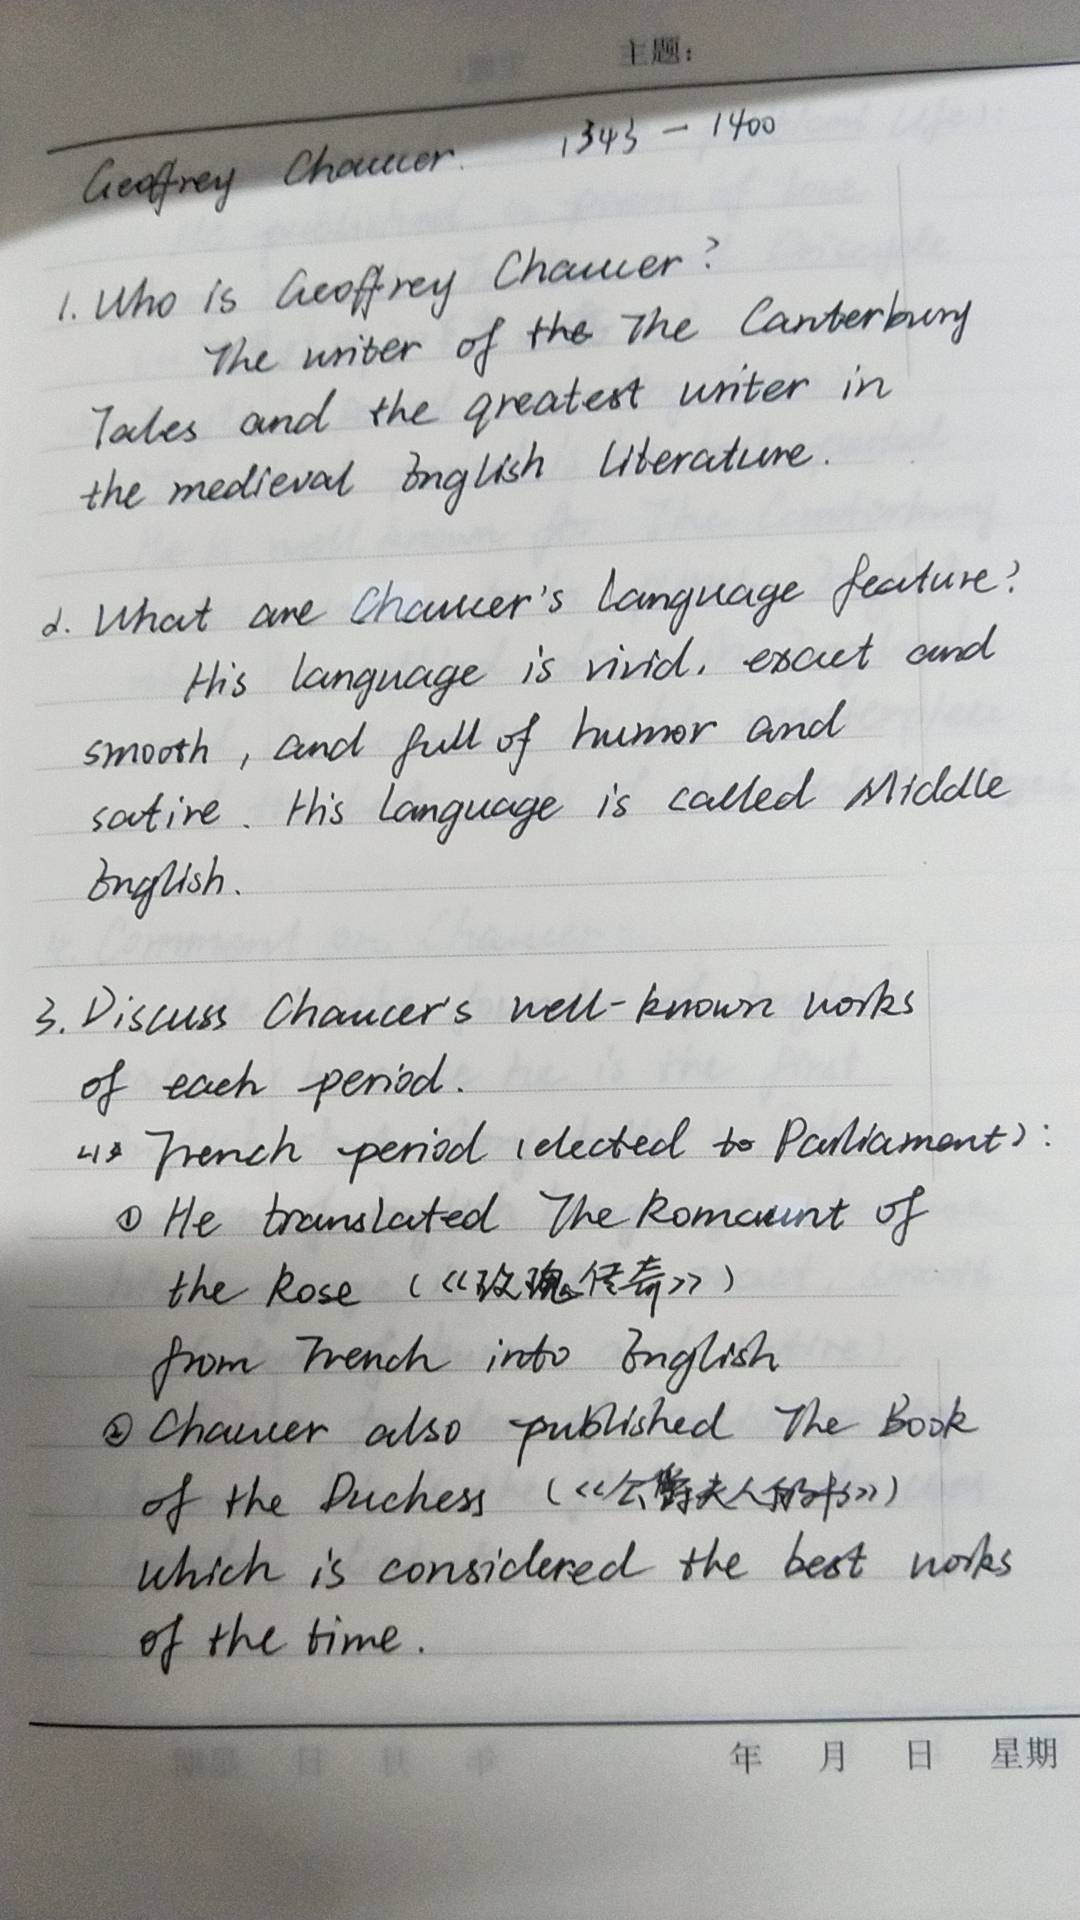 主题:
Geoffrey Chaucer. 1343 - 1400
1. Who is Geoffrey Chaucer?
The writer of the The Canterbury
Tales and the greatest writer in
the medieval English literature.
2. What are Chaucer's language feature?
His language is vivid, exact and
smooth, and full of humor and
satire. His language is called Middle
English.
3. Discuss Chaucer's well-known works
of each period.
(1) French period (elected to Parliament):
① He translated The Romaunt of
the Rose (《玫瑰传奇》)
from French into English
② Chaucer also published The Book
of the Duchess (《公爵夫人的书》)
which is considered the best works
of the time.
年 月 日 星期